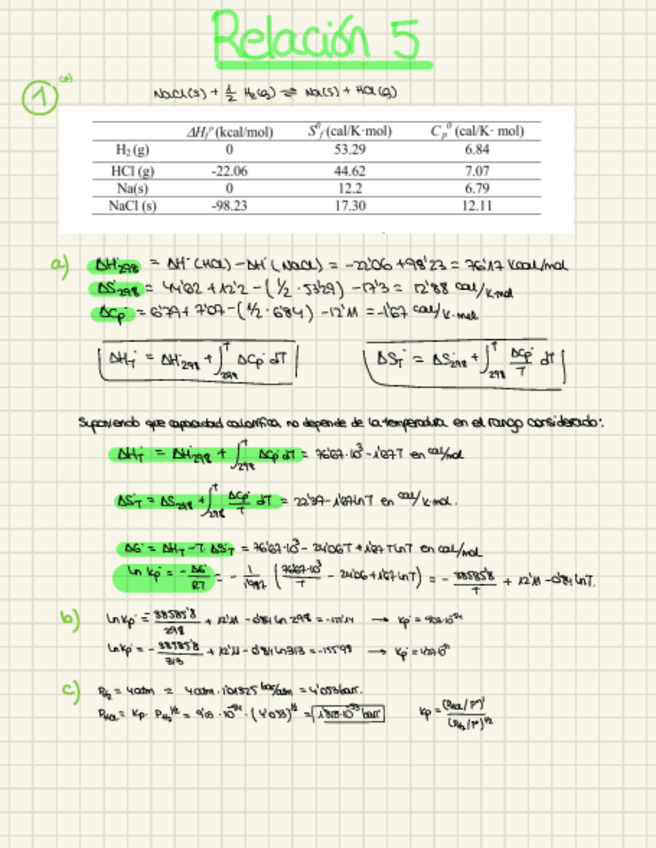 Relación 5
1 (a)
NaCl(s) + 1/2 H₂(g) ⇌ Na(s) + HCl(g)
ΔHf° (kcal/mol) S°f (cal/K·mol) Cp° (cal/K· mol)
H₂ (g) 0 53.29 6.84
HCl (g) -22.06 44.62 7.07
Na(s) 0 12.2 6.79
NaCl (s) -98.23 17.30 12.11
a) ΔH°298 = ΔH°(HCl) - ΔH°(NaCl) = -22'06 + 98'23 = 76'17 kcal/mol
ΔS°298 = 44'62 + 12'2 - (1/2 · 53'29) - 17'3 = 12'88 cal/K·mol
ΔCp° = 6'79 + 7'07 - (1/2 · 6'84) - 12'11 = -1'67 cal/K·mol
ΔH°T = ΔH°298 + ∫T298 ΔCp° dT ΔS°T = ΔS°298 + ∫T298 ΔCp°/T dT
Suponiendo que capacidad calorífica no depende de la temperatura en el rango considerado:
ΔH°T = ΔH°298 + ∫T298 ΔCp° dT = 76'67·10³ - 1'67T en cal/mol
ΔS°T = ΔS°298 + ∫T298 ΔCp°/T dT = 22'39 - 1'67lnT en cal/K·mol.
ΔG° = ΔH°T - T·ΔS°T = 76'67·10³ - 24'06T + 1'67 T lnT en cal/mol
ln Kp° = - ΔG°/RT = - 1/1'987 (76'67·10³/T - 24'06 + 1'67 lnT) = - 38585'8/T + 12'11 - 0'84 lnT.
b) ln Kp° = - 38585'8/298 + 12'11 - 0'84 ln 298 = → Kp° =
ln Kp° = - 38585'8/313 + 12'11 - 0'84 ln 313 = → Kp° =
c) PH₂ = 4 atm = 4 atm · 1'01325 bar/atm = 4'053 bar.
PHCl = Kp · PH₂^1/2 = · (4'053)^1/2 = bar Kp = (PHCl/P°)/(PH₂/P°)^1/2